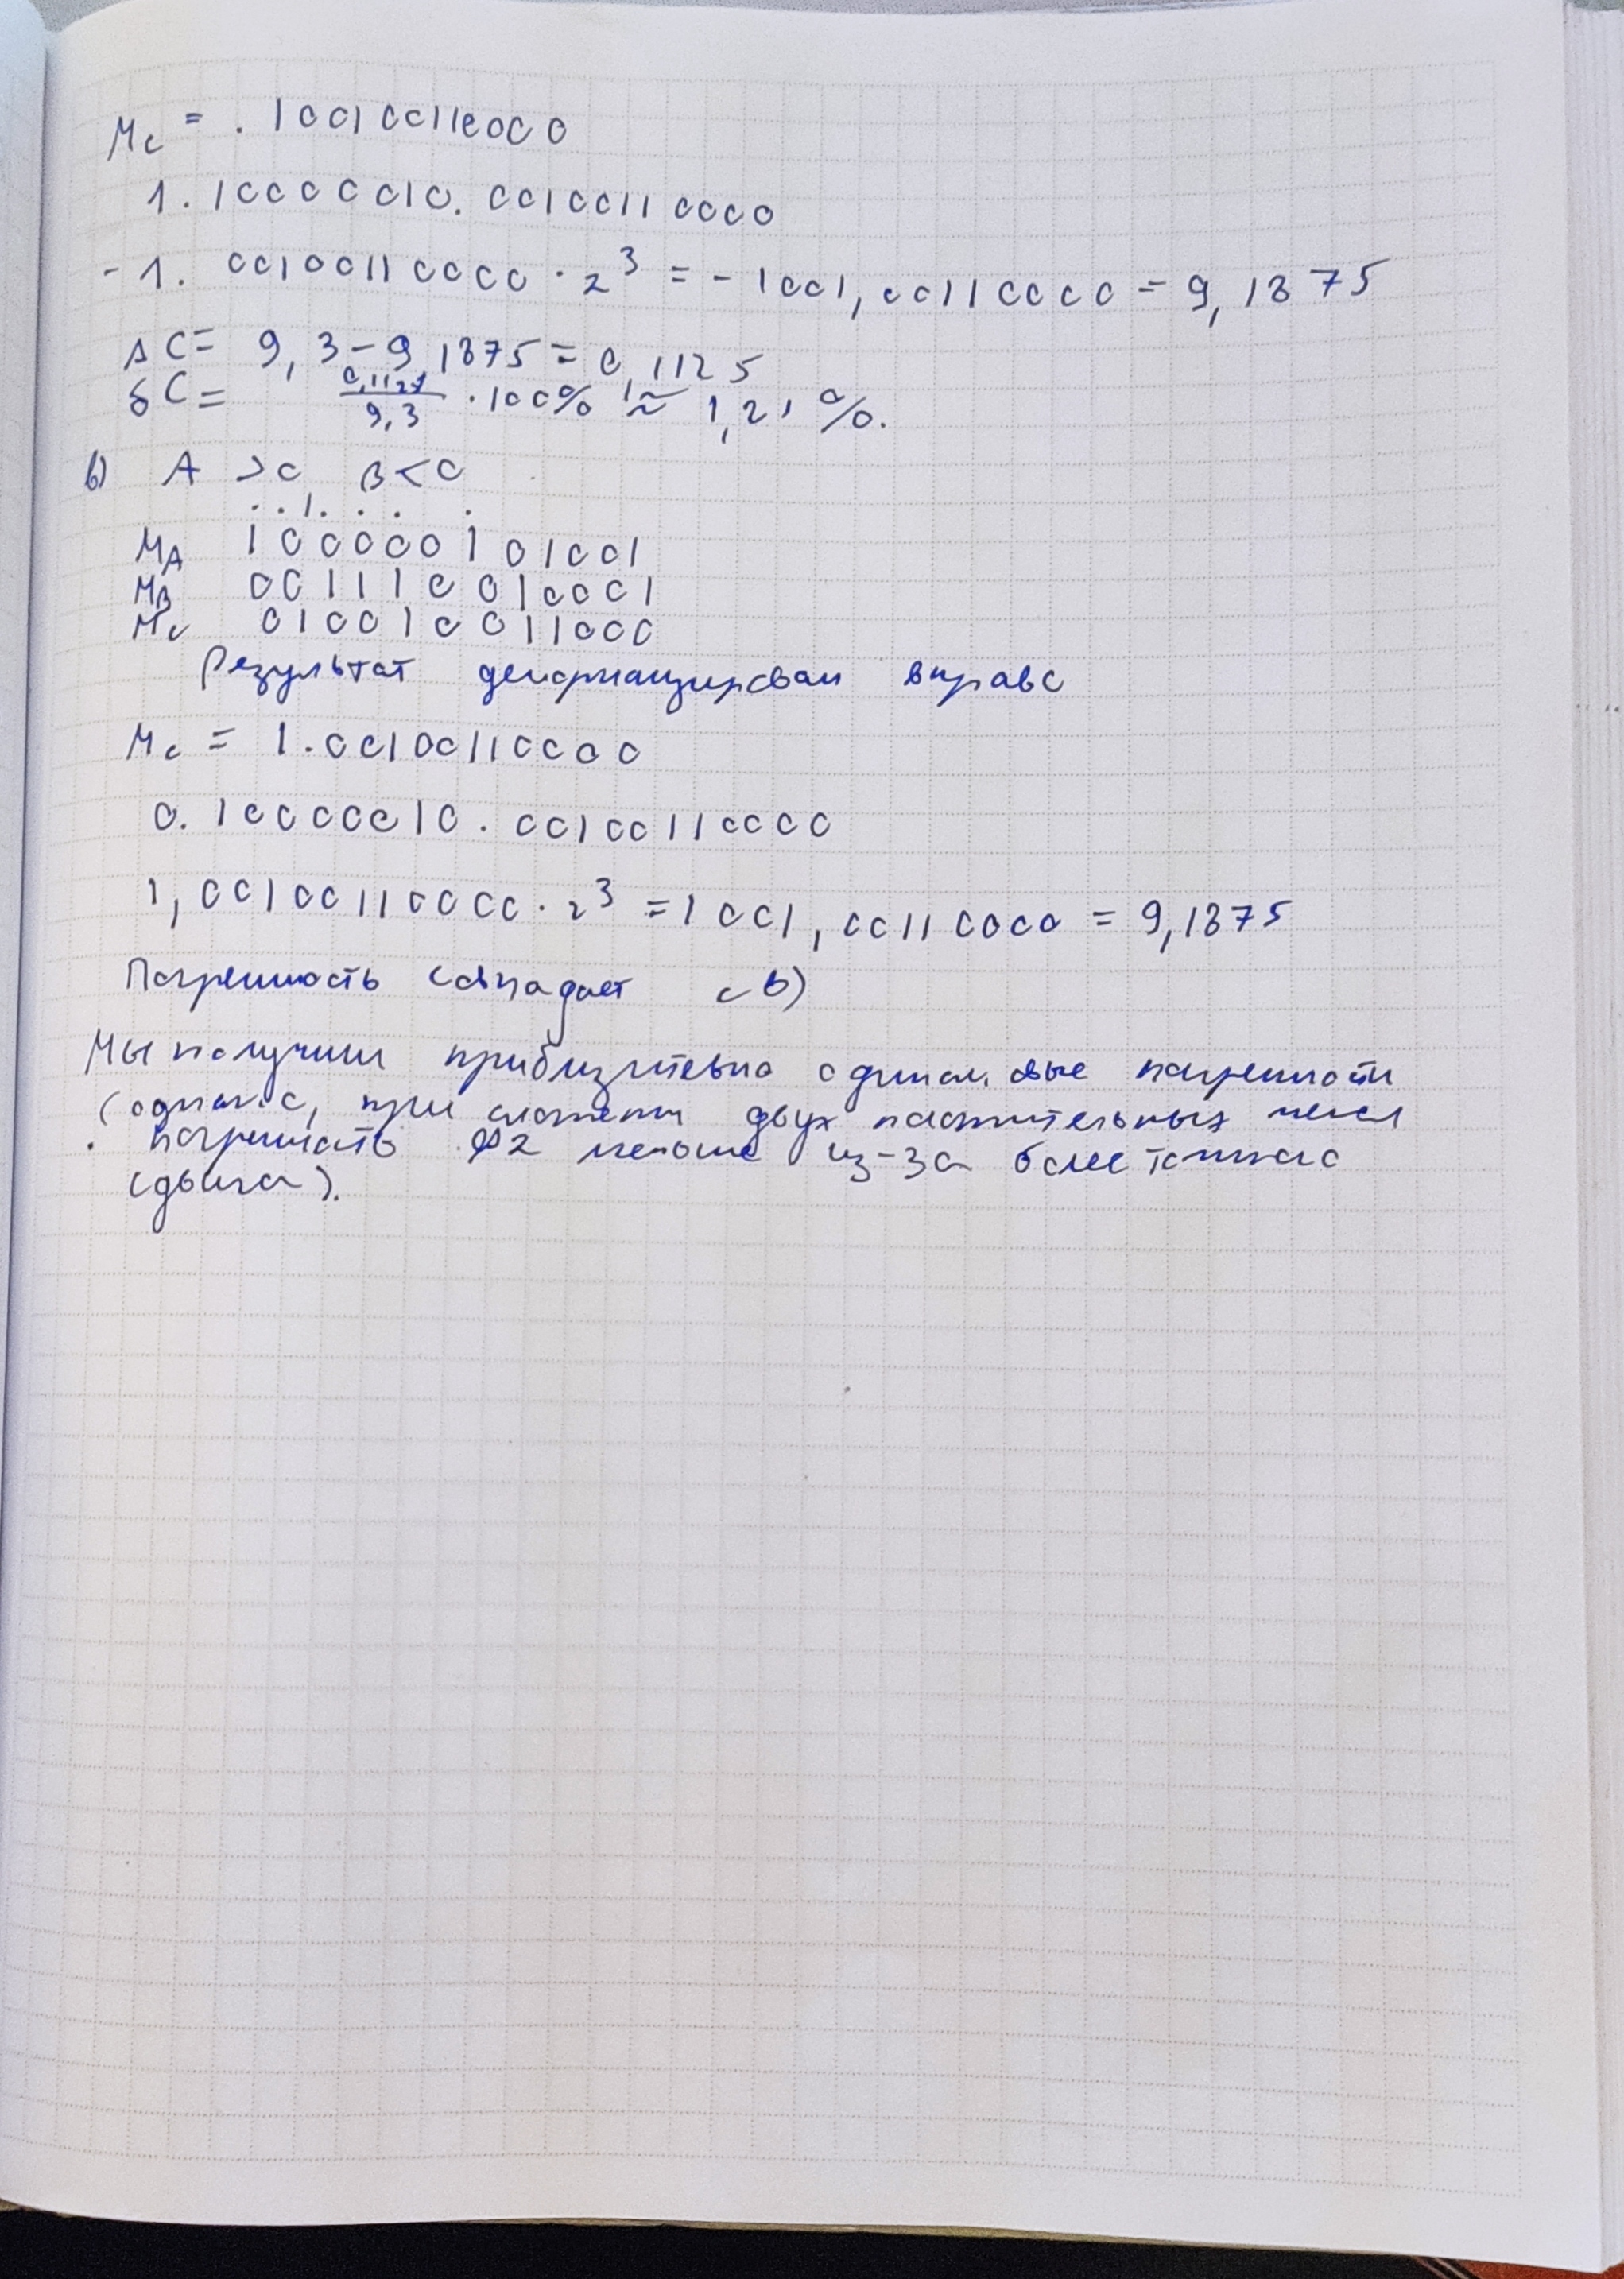 Mc = .100100110000
1.10000010.00100110000
-1.00100110000·2³ = -1001,00110000 = 9,1875
ΔC = 9,3-9,1875 = 0,1125
δC = 0,1125/9,3 · 100% ≈ 1,21%.
в) A > 0 B < 0
MA 100000101001
MB 001110010001
Mc 010010011000
Результат денормализирован вправо
Mc = 1.00100110000
0.10000010.00100110000
1,00100110000·2³ = 1001,00110000 = 9,1875
Погрешность совпадает с б)
Мы получили приблизительно одинаковые погрешности
(однако, при сложении двух положительных чисел
погрешность Ф2 меньше из-за более точного
сдвига).